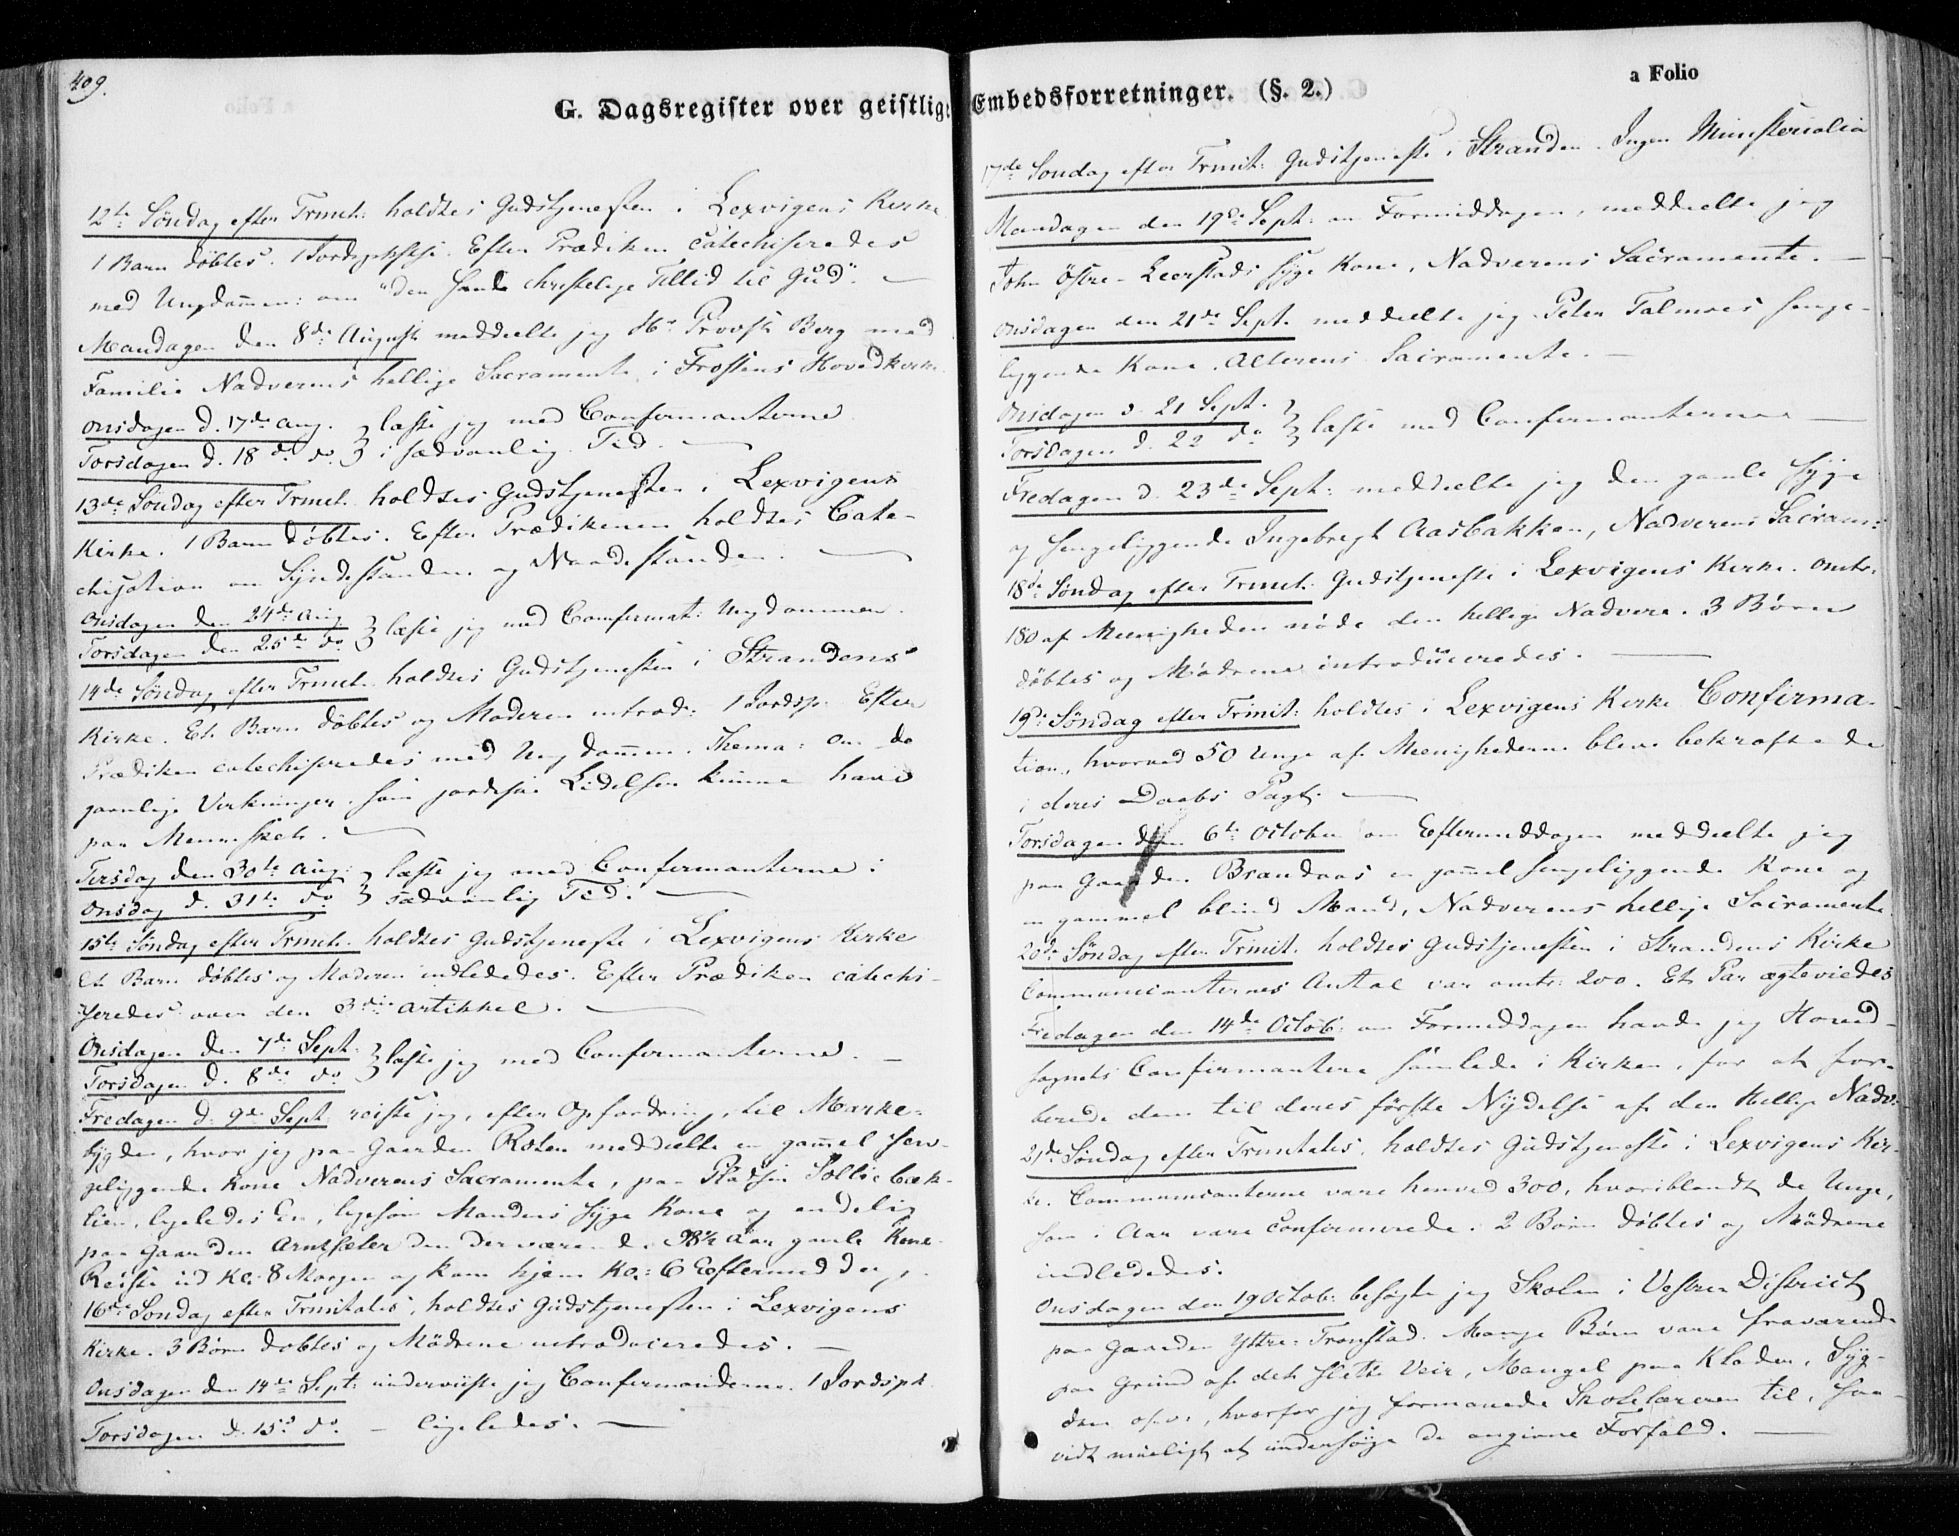 409.
G. Dagsregister over geistlige Embedsforretninger. (§. 2.)
a Folio
12te Søndag efter Trinit: holdtes Gudstjenesten i Lexvigens Kirke
1 Barn døbtes. 1 Jordpaakst. Efter Prædiken catechiseredes
med Ungdommen: om "den sande christelige Tillid til Gud". —
Mandagen den 8de August meddeelte jeg Hr Provst Berg med
Familie Nadverens hellige Sacramente i Frostens Hovedkirke.
Onsdagen d. 17de Aug. } læste jeg med Confirmanterne
Torsdagen d. 18de do } i sædvanlig Tid. —
13de Søndag efter Trinit. holdtes Gudstjenesten i Lexvigens
Kirke. 1 Barn døbtes. Efter Prædikenen holdtes Cate-
chisation om Syndestanden og Naadestanden. —
Onsdagen den 24de Aug } læste jeg med Comfirmat: Ungdommen.
Torsdagen den 25de do }
14de Søndag efter Trinit. holdtes Gudstjenesten i Strandens
Kirke. Et Barn døbtes og Moderen introd: 1 Jordsp. Efter
Prædiken catechiseredes med Ungdommen. Thema: om de
gavnlige Virkninger, som jordiske Lidelser kunne have
paa Mennesket. —
Tirsdag den 30te Aug: } læste jeg med Confirmanterne i
Onsdag d. 31te do } sædvanlig Tid. —
15de Søndag efter Trinit. holdtes Gudstjeneste i Lexvigens Kirke
Et Barn døbtes og Moderen indlededes. Efter Prædiken catechi-
seredes over den 3die Artikkel. —
Onsdagen den 7de Sept. } læste jeg med Confirmanterne. —
Torsdagen d. 8de do }
Fredagen d. 9de Sept. reiste jeg, efter Opfordring, til Marke-
bygden, hvor jeg paa Gaarden Roten meddeelte en gammel sen-
geliggende Kone Nadverens Sacramente, paa Pladsen Solliebæk-
lien, ligeledes En, ligesom Mandens syge Kone og endelig
paa Gaarden Arntsæter den derværende 98½ Aar gamle Kone.
Reiste ud Kl: 8 Morgen og kom hjem Kl: 6 Eftermiddag.
16de Søndag efter Trinitatis, holdtes Gudstjenesten i Lexvigens
Kirke. 3 Børn døbtes og Mödrene introduceredes. —
Onsdagen den 14de Sept: underviiste jeg Confirmanderne. 1 Jordspk.
Torsdagen d. 15d do — ligeledes. —
17de Søndag efter Trinit: Gudstjeneste i Stranden. Ingen Ministerialia
Mandagen den 19de Sept: om Formiddagen, meddeelte jeg
John Østre-Leerstads syge Kone, Nadverens Sacramente. —
Onsdagen den 21de Sept. meddeelte jeg Peter Talmoes senge-
liggende Kone, Alterens Sacramente. —
Onsdagen d. 21 Sept. } læste med Confirmanterne —
Torsdagen d. 22 do }
Fredagen d. 23de Sept: meddeelte jeg den gamle syge
og sengeliggende Ingebregt Aasbakken, Nadverens Sacram:
18de Søndag efter Trinit: Gudstjeneste i Lexvigens Kirke. Omtr.
180 af Menigheden nöde den hellige Nadvere. 3 Börn
döbtes og Mödrene introduceredes. —
19de Søndag efter Trinit: holdtes i Lexvigens Kirke Confirma-
tion, hvorved 50 Unge af Menighederne bleve bekræftede
i deres Daabs Pagt. —
Torsdagen den 6te October om Eftermiddagen meddeelte jeg
paa Gaarden Brandaas en gammel sengeliggende Kone og
en gammel blind Mand, Nadverens hellige Sacramente.
20de Søndag efter Trinit. holdtes Gudstjenesten i Strandens Kirke
Communicanternes Antal var omtr: 200. Et Par ægteviedes
Fredagen den 14de Octob: om Formiddagen havde jeg Hoved-
sognets Confirmantere samlede i Kirken, for at for-
berede dem til deres første Nydelse af den Hellige Nadv:
21de Søndag efter Trinitatis, holdtes Gudstjeneste i Lexvigens Kir-
ke. Communicanterne vare henved 300, hvoriblandt de Unge,
som i Aar vare Confirmerede. 2 Börn döbtes og Mödrene
indlededes.
Onsdagen den 19 Octob: besøgte jeg Skolen i Vestre District
paa Gaarden Yttre-Tronstad. Mange Börn vare fraværende
paa Grund af det slette Veir, Mangel paa Klæder, Syg-
dom osv., hvorfor jeg formanede Skolelæreren til, saa-
vidt mueligt at undersøge de angivne Forfald. —